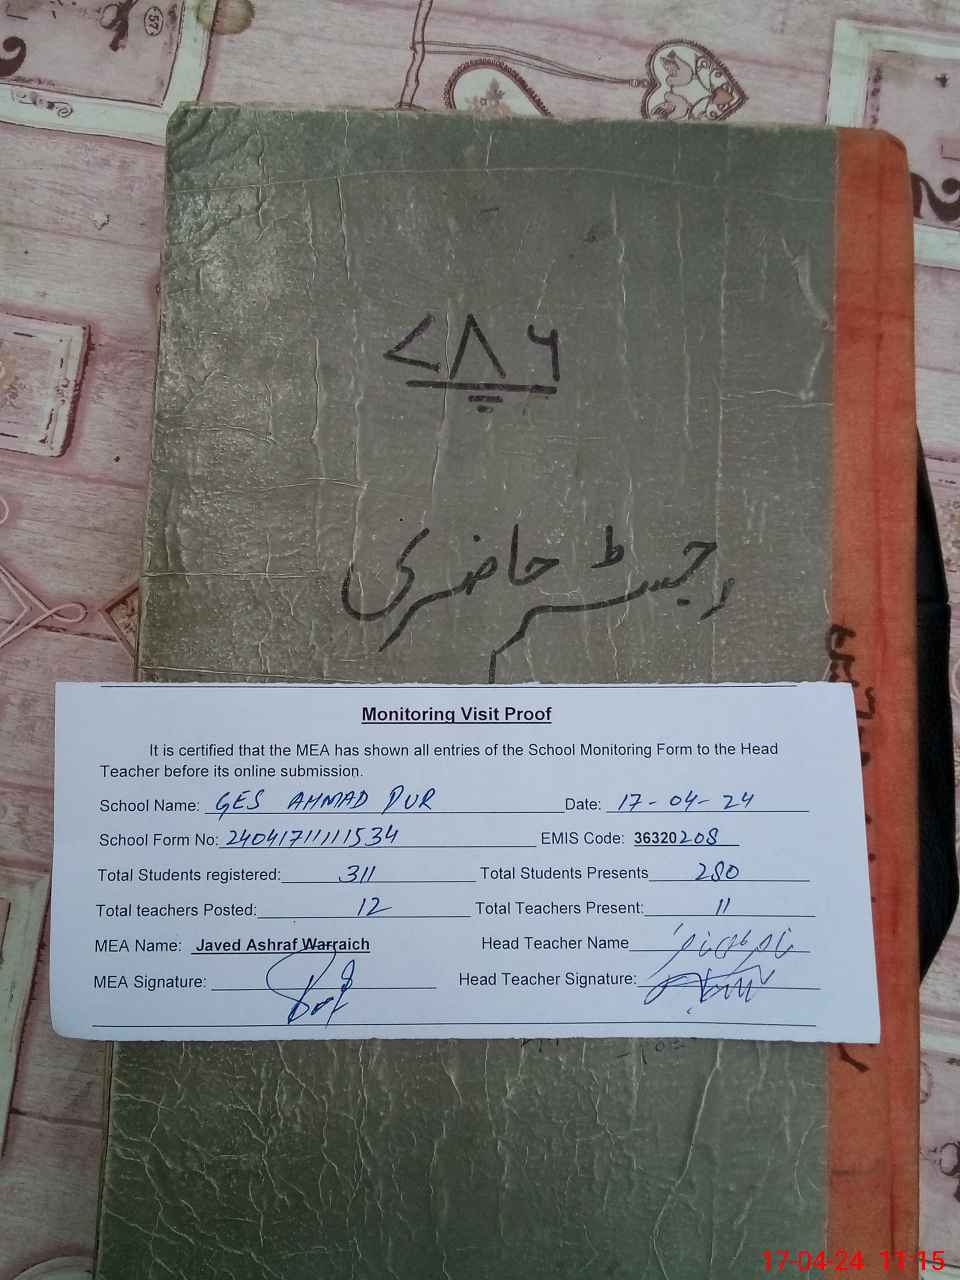 ۷۸۶
رجسٹر حاضری
Monitoring Visit Proof
It is certified that the MEA has shown all entries of the School Monitoring Form to the Head
Teacher before its online submission.
School Name: GES AHMAD PUR Date: 17-04-24
School Form No: 24041711111534 EMIS Code: 36320208
Total Students registered: 311 Total Students Presents 280
Total teachers Posted: 12 Total Teachers Present: 11
MEA Name: Javed Ashraf Warraich Head Teacher Name
MEA Signature: Head Teacher Signature:
17-04-24 11:15